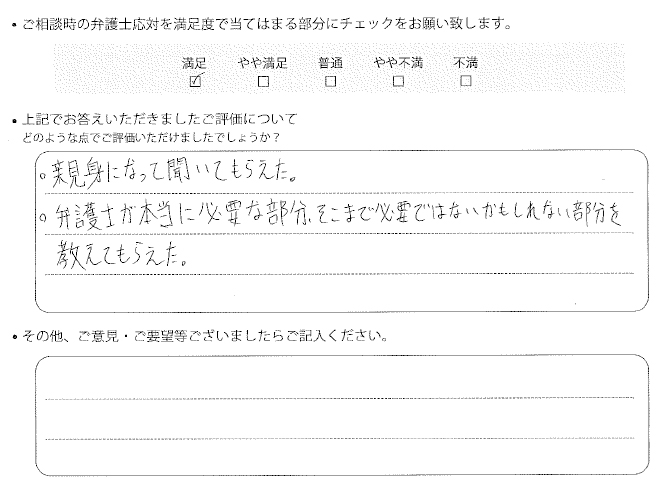 • ご相談時の弁護士応対を満足度で当てはまる部分にチェックをお願い致します。
満足 やや満足 普通 やや不満 不満
☑ ☐ ☐ ☐ ☐
• 上記でお答えいただきましたご評価について
どのような点でご評価いただけましたでしょうか？
。親身になって聞いてもらえた。
。弁護士が本当に必要な部分、そこまで必要ではないかもしれない部分を
教えてもらえた。
• その他、ご意見・ご要望等ございましたらご記入ください。